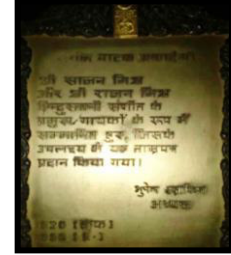 नाटक अकादमी
श्री साजन मिश्र
और श्री राजन मिश्र
हिन्दुस्तानी संगीत के
प्रमुख गायकों के रूप में
सम्मानित हुए, जिसके
उपलक्ष्य में यह ताम्रपत्र
प्रदान किया गया।
अध्यक्ष